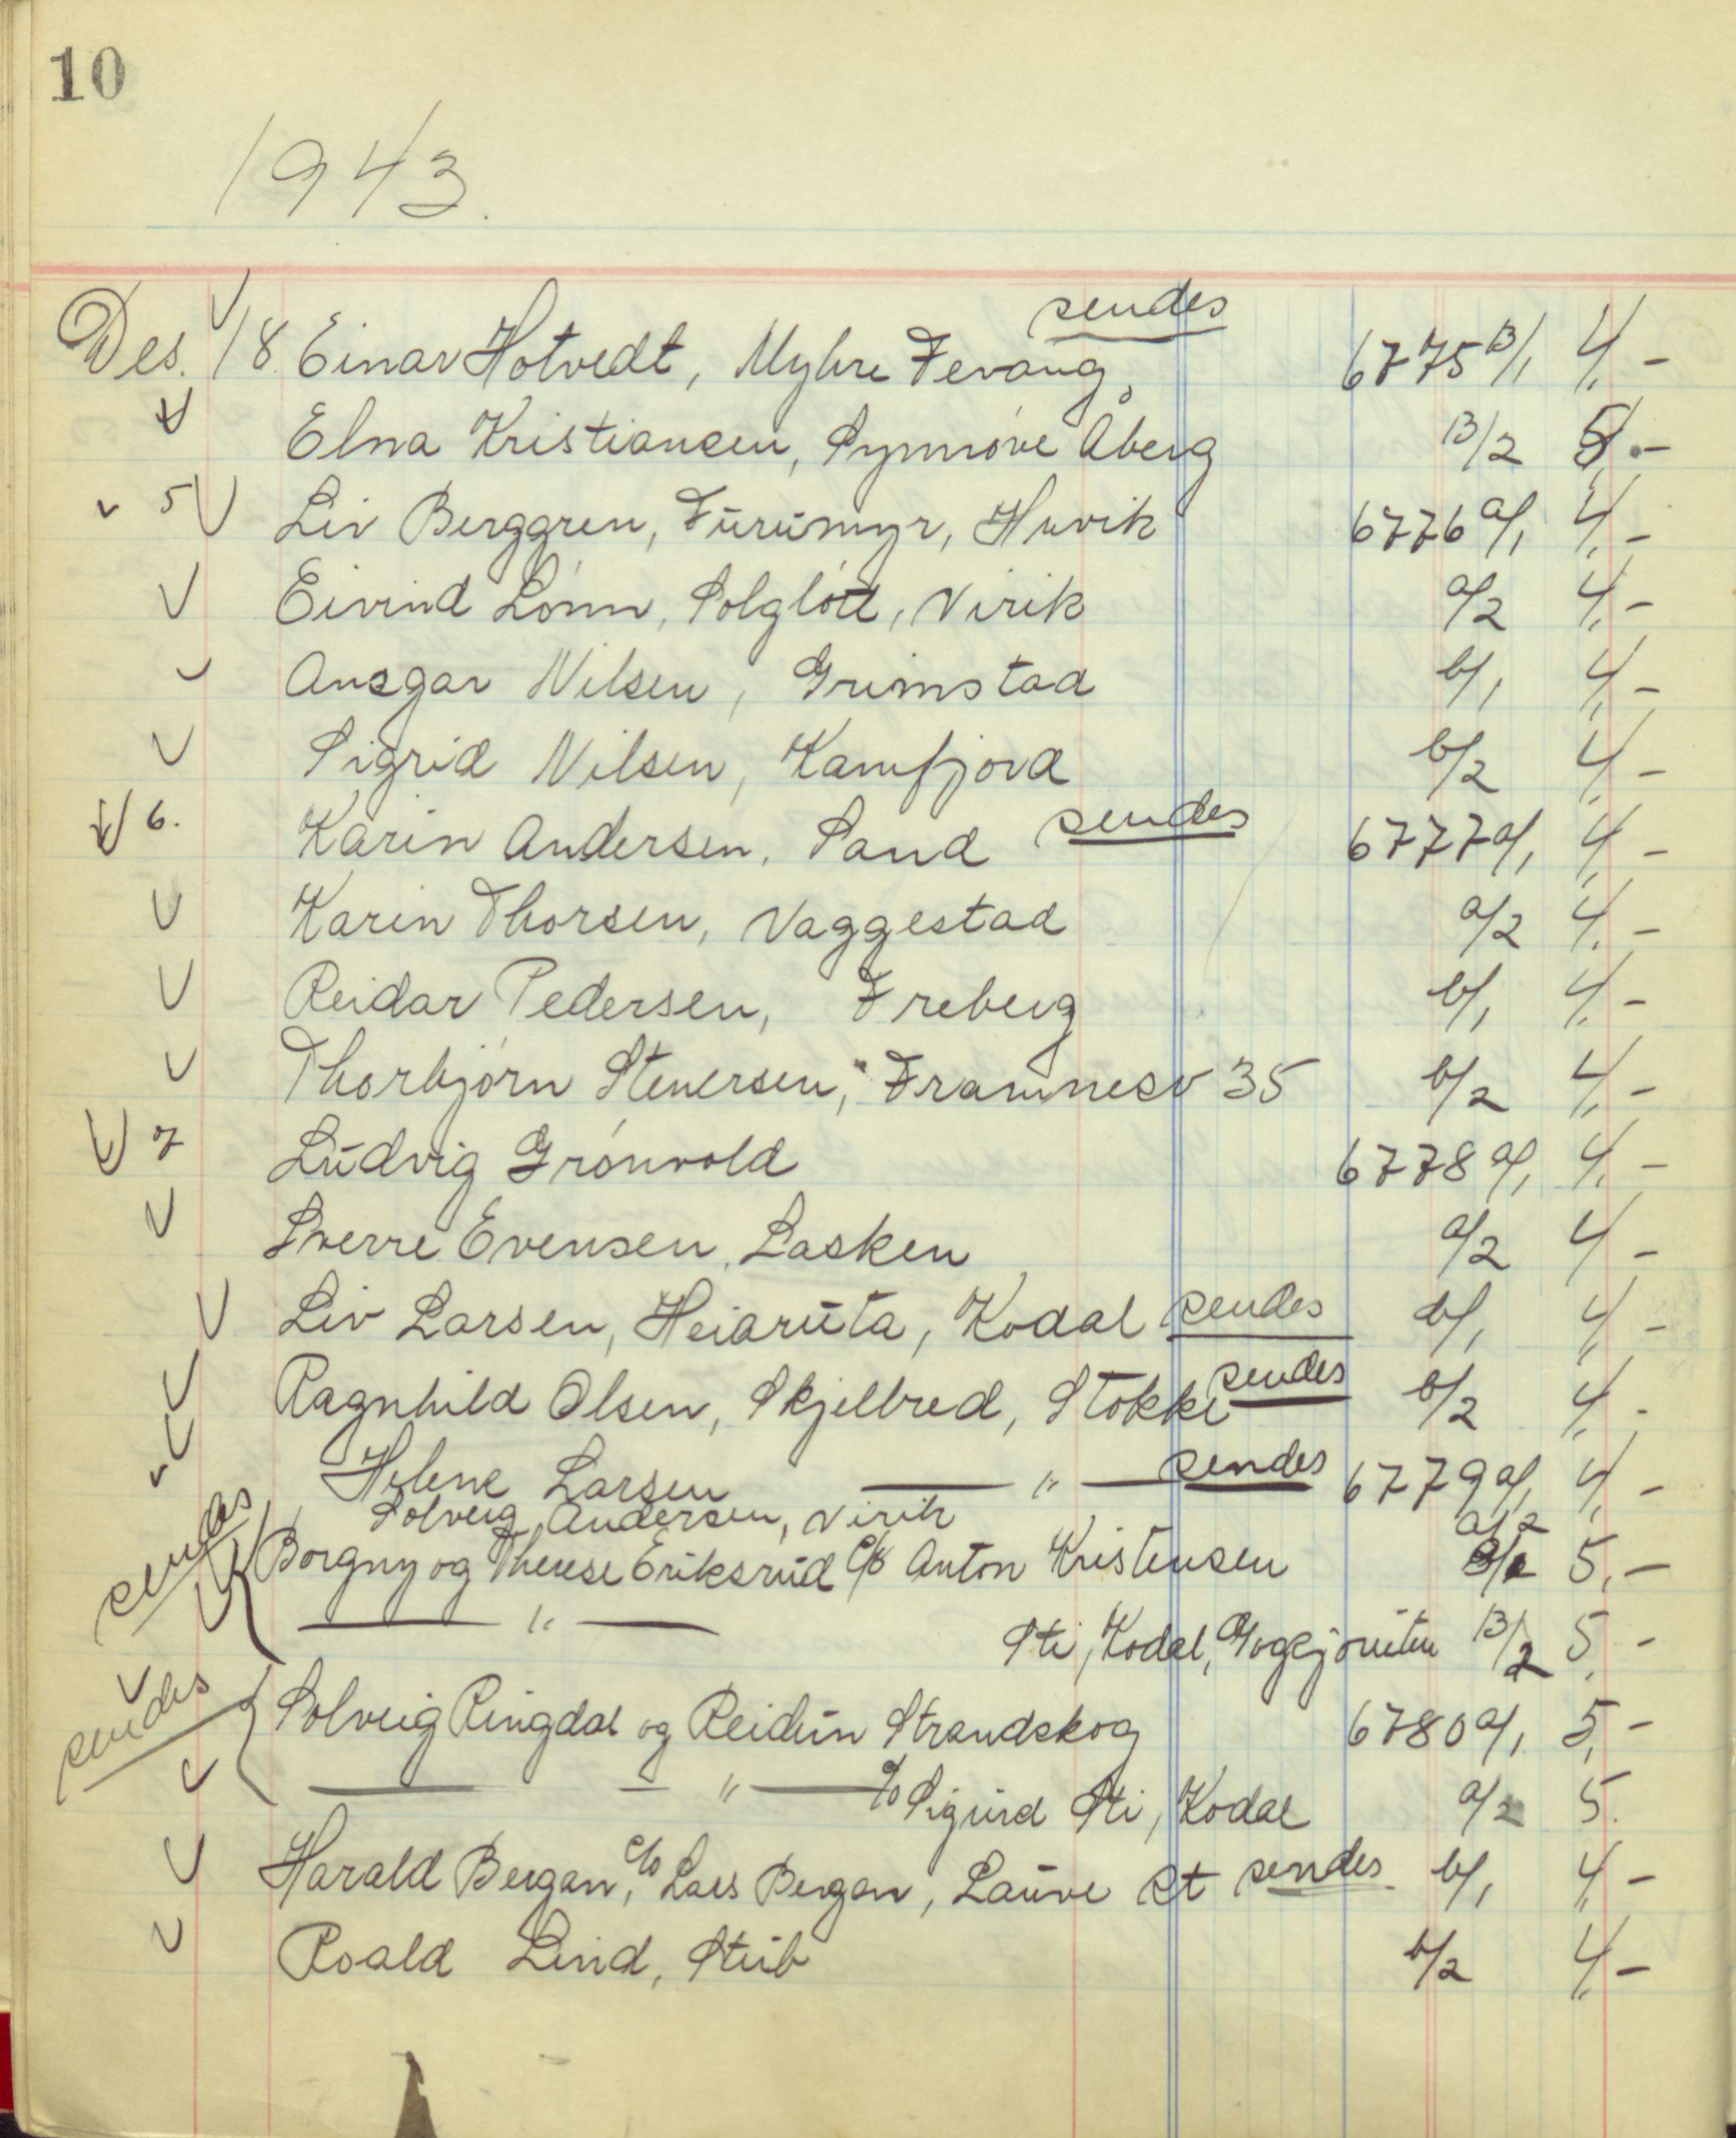 10
1943.
sendes
Des. 18. Einar Hotvedt, Myhre Fevang, 6775 B/1 4,-
Elna Kristiansen, Synnöve Åberg B/2 5.-
5 Liv Berggren, Furumyr, Huvik 6776 a/1 4,-
Eivind Lönn, Solglött, Virik a/2 4,-
Ansgar Nilsen, Grimstad b/1 4,-
Sigrid Nilsen, Kamfjord b/2 4,-
6. Karin Andersen, Sand sendes 6777 a/1 4,-
Karin Thorsen, Vaggestad a/2 4,-
Reidar Pedersen, Freberg b/1 4,-
Thorbjörn Stenersen, Framnesv 35 b/2 4,-
7 Ludvig Grönvold 6778 a/1 4,-
Sverre Evensen, Lasken a/2 4 -
Liv Larsen, Heiaruta, Kodal sendes b/1 4,-
Ragnhild Olsen, Skjelbred, Stokke sendes b/2 4,-
Helene Larsen — " — sendes 6779 a/1 4,-
Solveig Andersen, Virik a/2
sendes Borgny og Therese Eriksrud c/o Anton Kristensen B/1 5,-
— " — Sti, Kodal, B/2 5,-
sendes Solveig Ringdal og Reidun Strandskog 6780 a/1 5,-
— — " — c/o Sigurd Sti, Kodal a/2 5.
Harald Bergan, c/o Lars Bergan, Lauve st sendes b/1 4,-
Roald Lind, Stub b/2 4,-